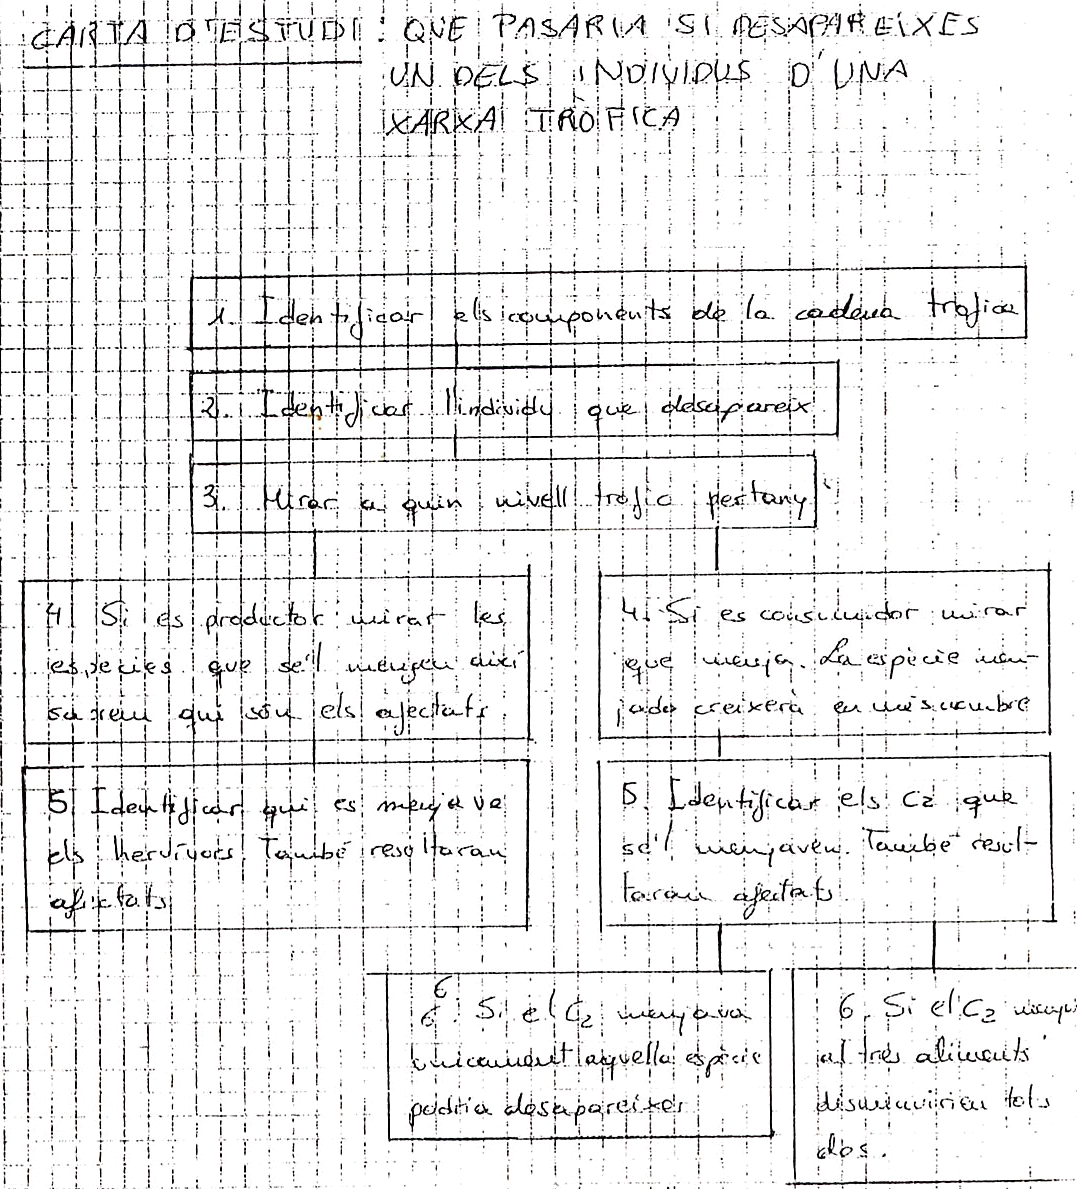 CARTA D'ESTUDI: QUE PASARIA SI DESAPAREIXES
UN DELS INDIVIDUS D'UNA
XARXA TRÒFICA
1. Identificar els components de la cadena trofica
2. Identificar l'individu que desapareix
3. Mirar a quin nivell trofic pertany
4. Si es productor mirar les
especies que se'l mengen aixi
sabrem qui són els afectats.
5. Identificar qui es menjava
els hervivors. També resultaran
afectats
4. Si es consumidor mirar
que menja. La espècie men-
jada creixerà en més nombre
5. Identificar els C2 que
se'l menjaven. També resul-
taran afectats.
6. Si el C2 menjava
unicament aquella espècie
podria desapareixer
6. Si el C2
altres aliments
disminuirien tots
dos.